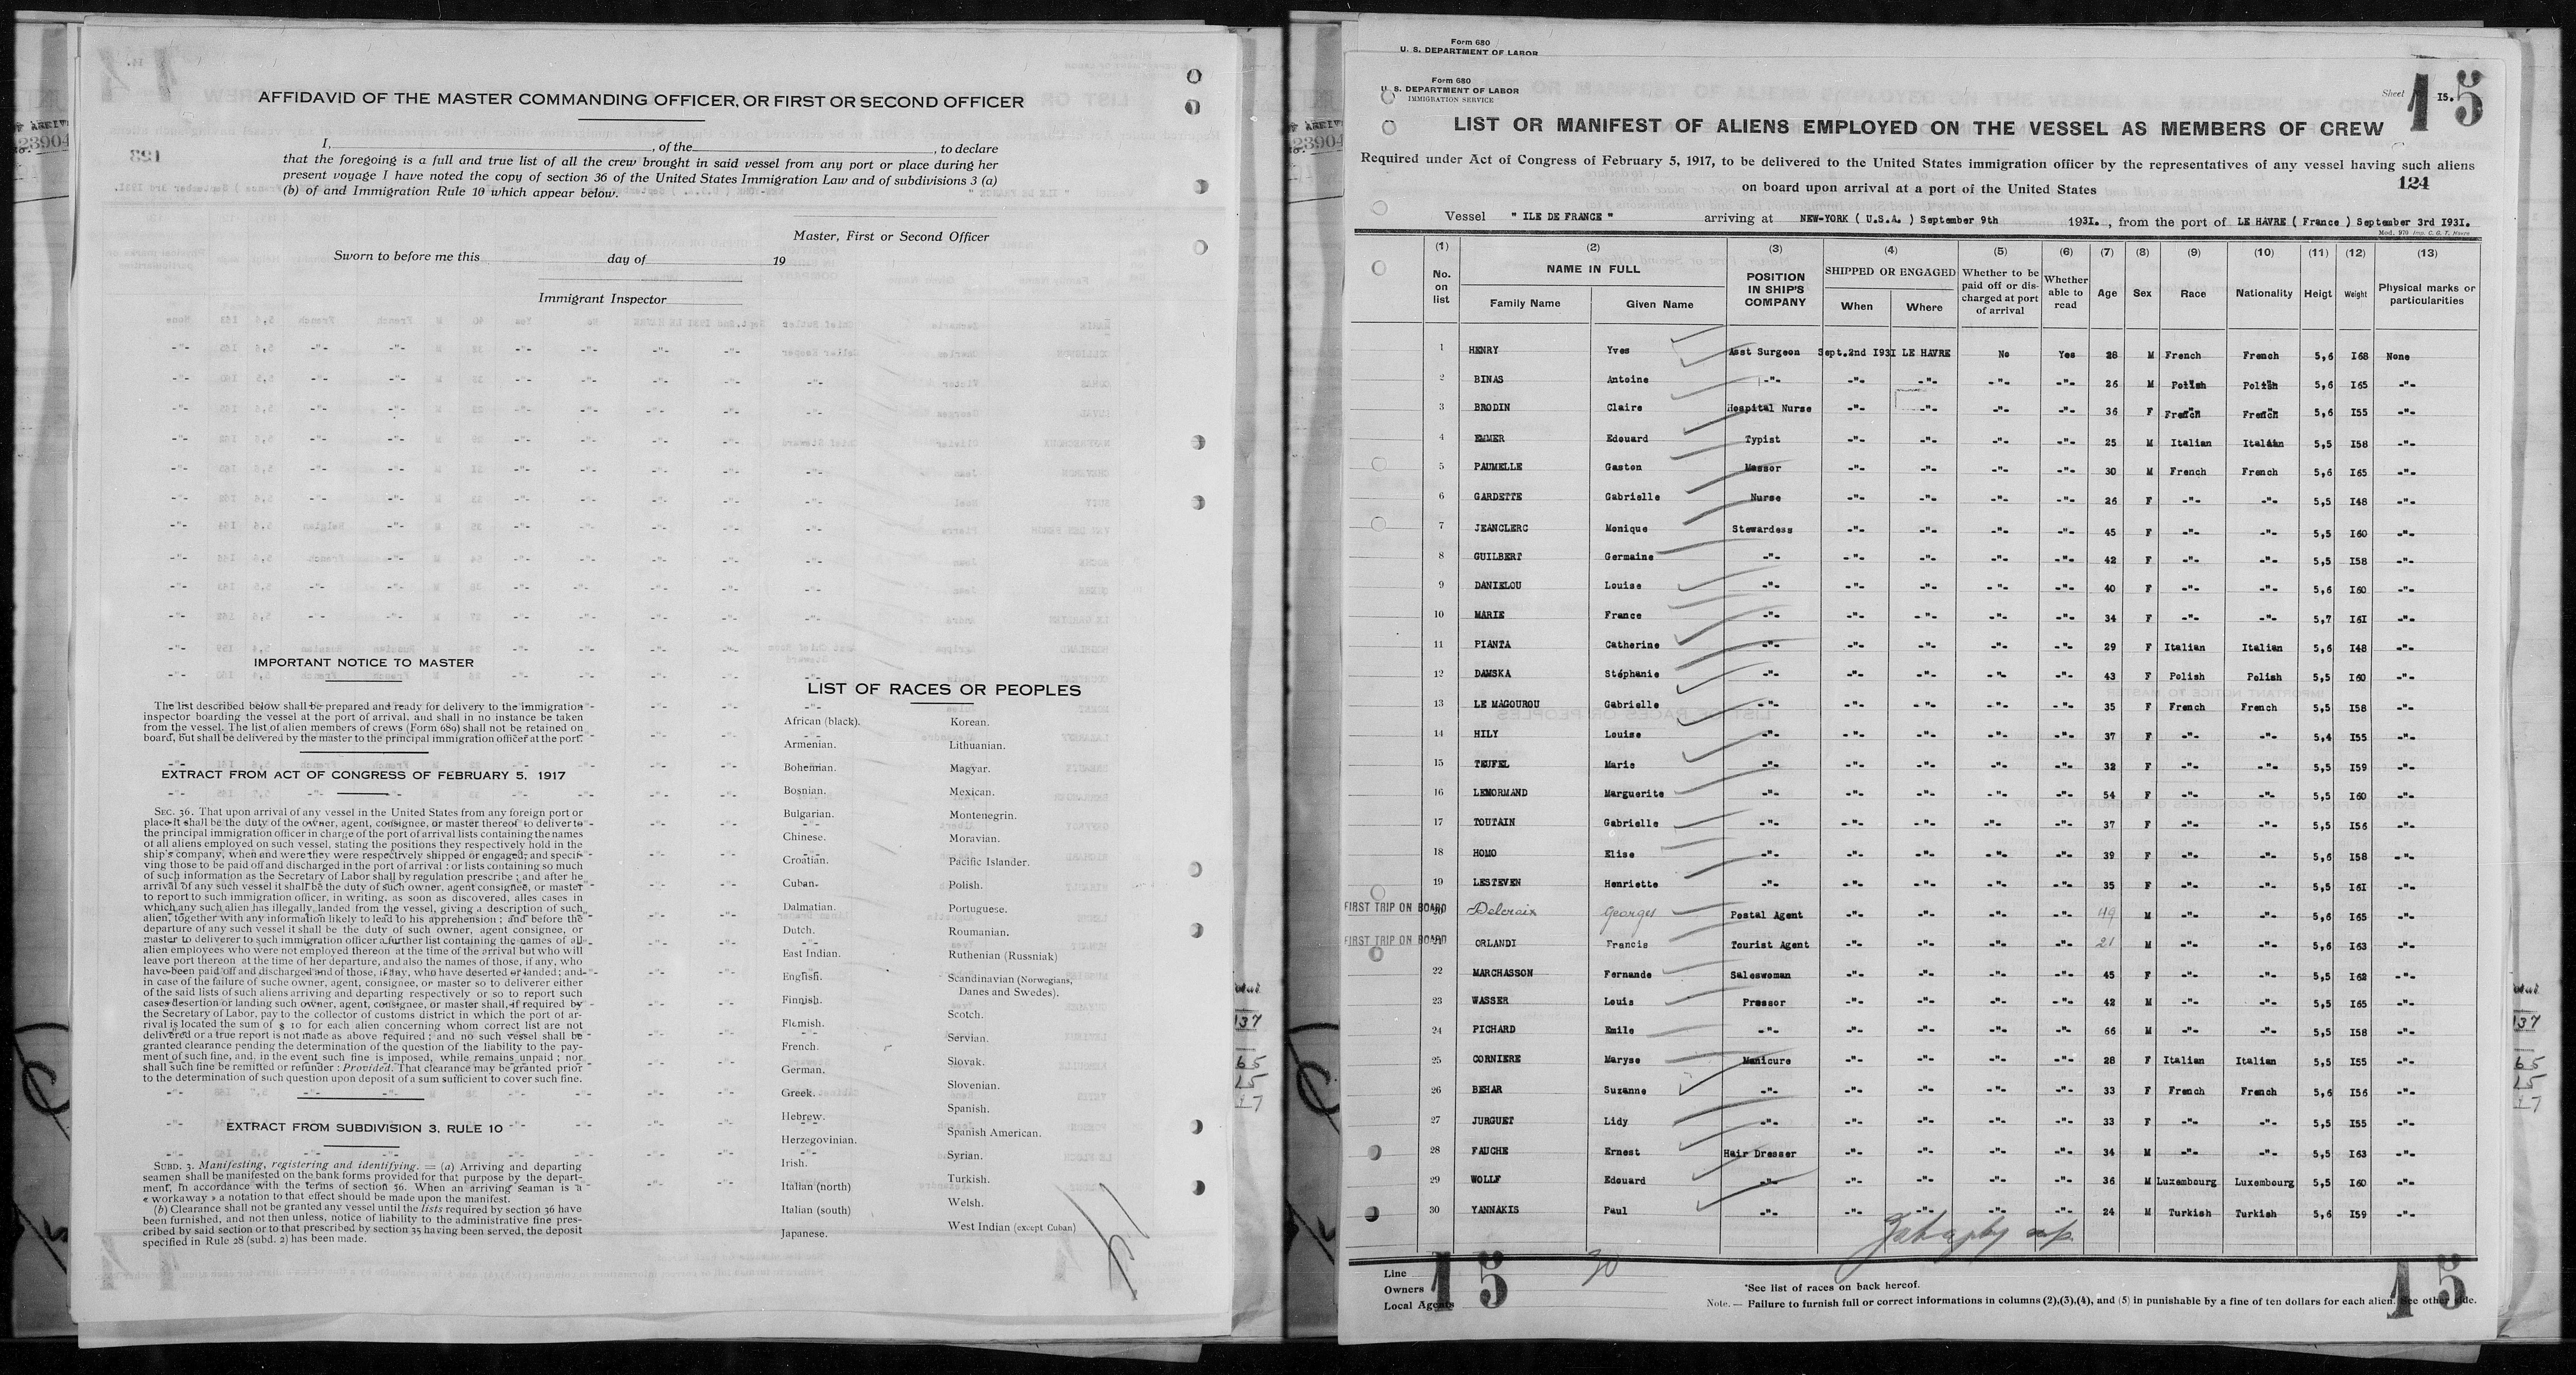 AFFIDAVID OF THE MASTER COMMANDING OFFICER, OR FIRST OR SECOND OFFICER
I, , of the , to declare
that the foregoing is a full and true list of all the crew brought in said vessel from any port or place during her
present voyage I have noted the copy of section 36 of the United States Immigration Law and of subdivisions 3 (a)
(b) of and Immigration Rule 10 which appear below.
Master, First or Second Officer
Sworn to before me this day of 19
Immigrant Inspector
IMPORTANT NOTICE TO MASTER
The list described below shall be prepared and ready for delivery to the immigration
inspector boarding the vessel at the port of arrival, and shall in no instance be taken
from the vessel. The list of alien members of crews (Form 680) shall not be retained on
board, but shall be delivered by the master to the principal immigration officer at the port.
EXTRACT FROM ACT OF CONGRESS OF FEBRUARY 5, 1917
SEC. 36. That upon arrival of any vessel in the United States from any foreign port or
place it shall be the duty of the owner, agent, consignee, or master thereof to deliver to
the principal immigration officer in charge of the port of arrival lists containing the names
of all aliens employed on such vessel, stating the positions they respectively hold in the
ship's company, when and were they were respectively shipped or engaged, and specif-
ving those to be paid off and discharged in the port of arrival : or lists containing so much
of such information as the Secretary of Labor shall by regulation prescribe ; and after he
arrival of any such vessel it shall be the duty of such owner, agent consignee, or master
to report to such immigration officer, in writing, as soon as discovered, alles cases in
which any such alien has illegally landed from the vessel, giving a description of such
alien, together with any information likely to lead to his apprehension ; and before the
departure of any such vessel it shall be the duty of such owner, agent consignee, or
master to deliverer to such immigration officer a further list containing the names of all
alien employees who were not employed thereon at the time of the arrival but who will
leave port thereon at the time of her departure, and also the names of those, if any, who
have been paid off and discharged and of those, if any, who have deserted or landed ; and
in case of the failure of suche owner, agent, consignee, or master so to deliverer either
of the said lists of such aliens arriving and departing respectively or so to report such
cases desertion or landing such owner, agent, consignee, or master shall, if required by
the Secretary of Labor, pay to the collector of customs district in which the port of ar-
rival is located the sum of $ 10 for each alien concerning whom correct list are not
delivered or a true report is not made as above required ; and no such vessel shall be
granted clearance pending the determination of the question of the liability to the pay-
ment of such fine, and, in the event such fine is imposed, while remains unpaid ; nor
shall such fine be remitted or refunder : Provided. That clearance may be granted prior
to the determination of such question upon deposit of a sum sufficient to cover such fine.
EXTRACT FROM SUBDIVISION 3, RULE 10
SUBD. 3. Manifesting, registering and identifying. = (a) Arriving and departing
seamen shall be manifested on the bank forms provided for that purpose by the depart-
ment, in accordance with the terms of section 36. When an arriving seaman is a
« workaway » a notation to that effect should be made upon the manifest.
(b) Clearance shall not be granted any vessel until the lists required by section 36 have
been furnished, and not then unless, notice of liability to the administrative fine pres-
cribed by said section or to that prescribed by section 35 having been served, the deposit
specified in Rule 28 (subd. 2) has been made.
LIST OF RACES OR PEOPLES
African (black).
Armenian.
Bohemian.
Bosnian.
Bulgarian.
Chinese.
Croatian.
Cuban.
Dalmatian.
Dutch.
East Indian.
English.
Finnish.
Flemish.
French.
German.
Greek.
Hebrew.
Herzegovinian.
Irish.
Italian (north)
Italian (south)
Japanese.
Korean.
Lithuanian.
Magyar.
Mexican.
Montenegrin.
Moravian.
Pacific Islander.
Polish.
Portuguese.
Roumanian.
Ruthenian (Russniak)
Scandinavian (Norwegians,
Danes and Swedes).
Scotch.
Servian.
Slovak.
Slovenian.
Spanish.
Spanish American.
Syrian.
Turkish.
Welsh.
West Indian (except Cuban)
14
Form 680
U. S. DEPARTMENT OF LABOR
Form 680
U. S. DEPARTMENT OF LABOR
IMMIGRATION SERVICE
Sheet I5.
15
LIST OR MANIFEST OF ALIENS EMPLOYED ON THE VESSEL AS MEMBERS OF CREW
Required under Act of Congress of February 5, 1917, to be delivered to the United States immigration officer by the representatives of any vessel having such aliens
on board upon arrival at a port of the United States
124
Vessel " ILE DE FRANCE " arriving at NEW-YORK ( U.S.A. ) September 9th 193I. , from the port of LE HAVRE ( France ) September 3rd I93I.
Mod. 970 Imp. C. G. T. Havre
(1) (2) (3) (4) (5) (6) (7) (8) (9) (10) (11) (12) (13)
No. on list NAME IN FULL Family Name Given Name POSITION IN SHIP'S COMPANY SHIPPED OR ENGAGED When Where Whether to be paid off or discharged at port of arrival Whether able to read Age Sex Race Nationality Heigt Weight Physical marks or particularities
1 HENRY Yves Asst Surgeon Sept.2nd I93I LE HAVRE No Yes 28 M French French 5,6 I68 None
2 BINAS Antoine -"- -"- -"- -"- -"- 26 M Polish Polish 5,6 I65 -"-
3 BRODIN Claire Hospital Nurse -"- -"- -"- -"- 36 F French French 5,6 I55 -"-
4 EMMER Edouard Typist -"- -"- -"- -"- 25 M Italian Italian 5,5 I58 -"-
5 PAUMELLE Gaston Massor -"- -"- -"- -"- 30 M French French 5,6 I65 -"-
6 GARDETTE Gabrielle Nurse -"- -"- -"- -"- 26 F -"- -"- 5,5 I48 -"-
7 JEANCLERC Monique Stewardess -"- -"- -"- -"- 45 F -"- -"- 5,5 I60 -"-
8 GUILBERT Germaine -"- -"- -"- -"- -"- 42 F -"- -"- 5,5 I58 -"-
9 DANIELOU Louise -"- -"- -"- -"- -"- 40 F -"- -"- 5,6 I60 -"-
10 MARIE France -"- -"- -"- -"- -"- 34 F -"- -"- 5,7 I6I -"-
11 PIANTA Catherine -"- -"- -"- -"- -"- 29 F Italian Italian 5,6 I48 -"-
12 DAMSKA Stéphanie -"- -"- -"- -"- -"- 43 F Polish Polish 5,5 I60 -"-
13 LE MAGOUROU Gabrielle -"- -"- -"- -"- -"- 35 F French French 5,5 I58 -"-
14 HILY Louise -"- -"- -"- -"- -"- 37 F -"- -"- 5,4 I55 -"-
15 TEUFEL Marie -"- -"- -"- -"- -"- 32 F -"- -"- 5,5 I59 -"-
16 LENORMAND Marguerite -"- -"- -"- -"- -"- 54 F -"- -"- 5,5 I60 -"-
17 TOUTAIN Gabrielle -"- -"- -"- -"- -"- 37 F -"- -"- 5,5 I56 -"-
18 HOMO Elise -"- -"- -"- -"- -"- 39 F -"- -"- 5,6 I58 -"-
19 LESTEVEN Henriette -"- -"- -"- -"- -"- 35 F -"- -"- 5,5 I6I -"-
FIRST TRIP ON BOARD 20 Delcroix Georges Postal Agent -"- -"- -"- -"- 49 M -"- -"- 5,6 I65 -"-
FIRST TRIP ON BOARD 21 ORLANDI Francis Tourist Agent -"- -"- -"- -"- 21 M -"- -"- 5,6 I63 -"-
22 MARCHASSON Fernande Saleswoman -"- -"- -"- -"- 45 F -"- -"- 5,5 I62 -"-
23 WASSER Louis Pressor -"- -"- -"- -"- 42 M -"- -"- 5,5 I65 -"-
24 PICHARD Emile -"- -"- -"- -"- -"- 66 M -"- -"- 5,5 I58 -"-
25 CORNIERE Maryse Manicure -"- -"- -"- -"- 28 F Italian Italian 5,5 I55 -"-
26 BEHAR Suzanne -"- -"- -"- -"- -"- 33 F French French 5,6 I56 -"-
27 JURGUET Lidy -"- -"- -"- -"- -"- 33 F -"- -"- 5,5 I55 -"-
28 FAUCHE Ernest Hair Dresser -"- -"- -"- -"- 34 M -"- -"- 5,5 I63 -"-
29 WOLLF Edouard -"- -"- -"- -"- -"- 36 M Luxembourg Luxembourg 5,5 I60 -"-
30 YANNAKIS Paul -"- -"- -"- -"- -"- 24 M Turkish Turkish 5,6 I59 -"-
Line
Owners
Local Agents
15
30
*See list of races on back hereof.
Note. — Failure to furnish full or correct informations in columns (2),(3),(4), and (5) in punishable by a fine of ten dollars for each alien. See other side.
15